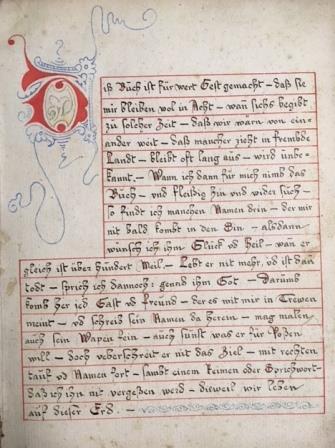 Diß Buch ist für wert Gest gemacht – daß sie
mir bleiben wol in Acht – wan sichs begibt
zu solcher Zeit – daß wir wärn von ein-
ander weit – daß mancher zicht in frembde
Landt – bleibt oft lang aus – wird unbe-
kannt. – Wann ich dann für mich nimb das
Buch – und fleißig hin und wider such –
so findt ich manchen Namen drin – der mir
nit bald kombt in den Sin – alsdann
wünsch ich ihm Glück vd Heil – wan er
gleich ist über hundert Meil. – Lebt er nit mehr, vd ist dan
todt – sprich ich dannoch: genad ihm Got – Darumb
komb her jed Gast vd Freund – der es mit mir in Trewen
meint – vd schreib sein Namen da herein – mag malen
auch sein Wapen fein – auch sunst was er für Poßen
will – doch veberschreit er nit das Ziel – mit rechten
tauf vd Namen Ort – sambt einem Reimen oder Sprichwort –
daß ich ihn nit vergeßen werd – dieweil wir leben
auf dieser Erd. –